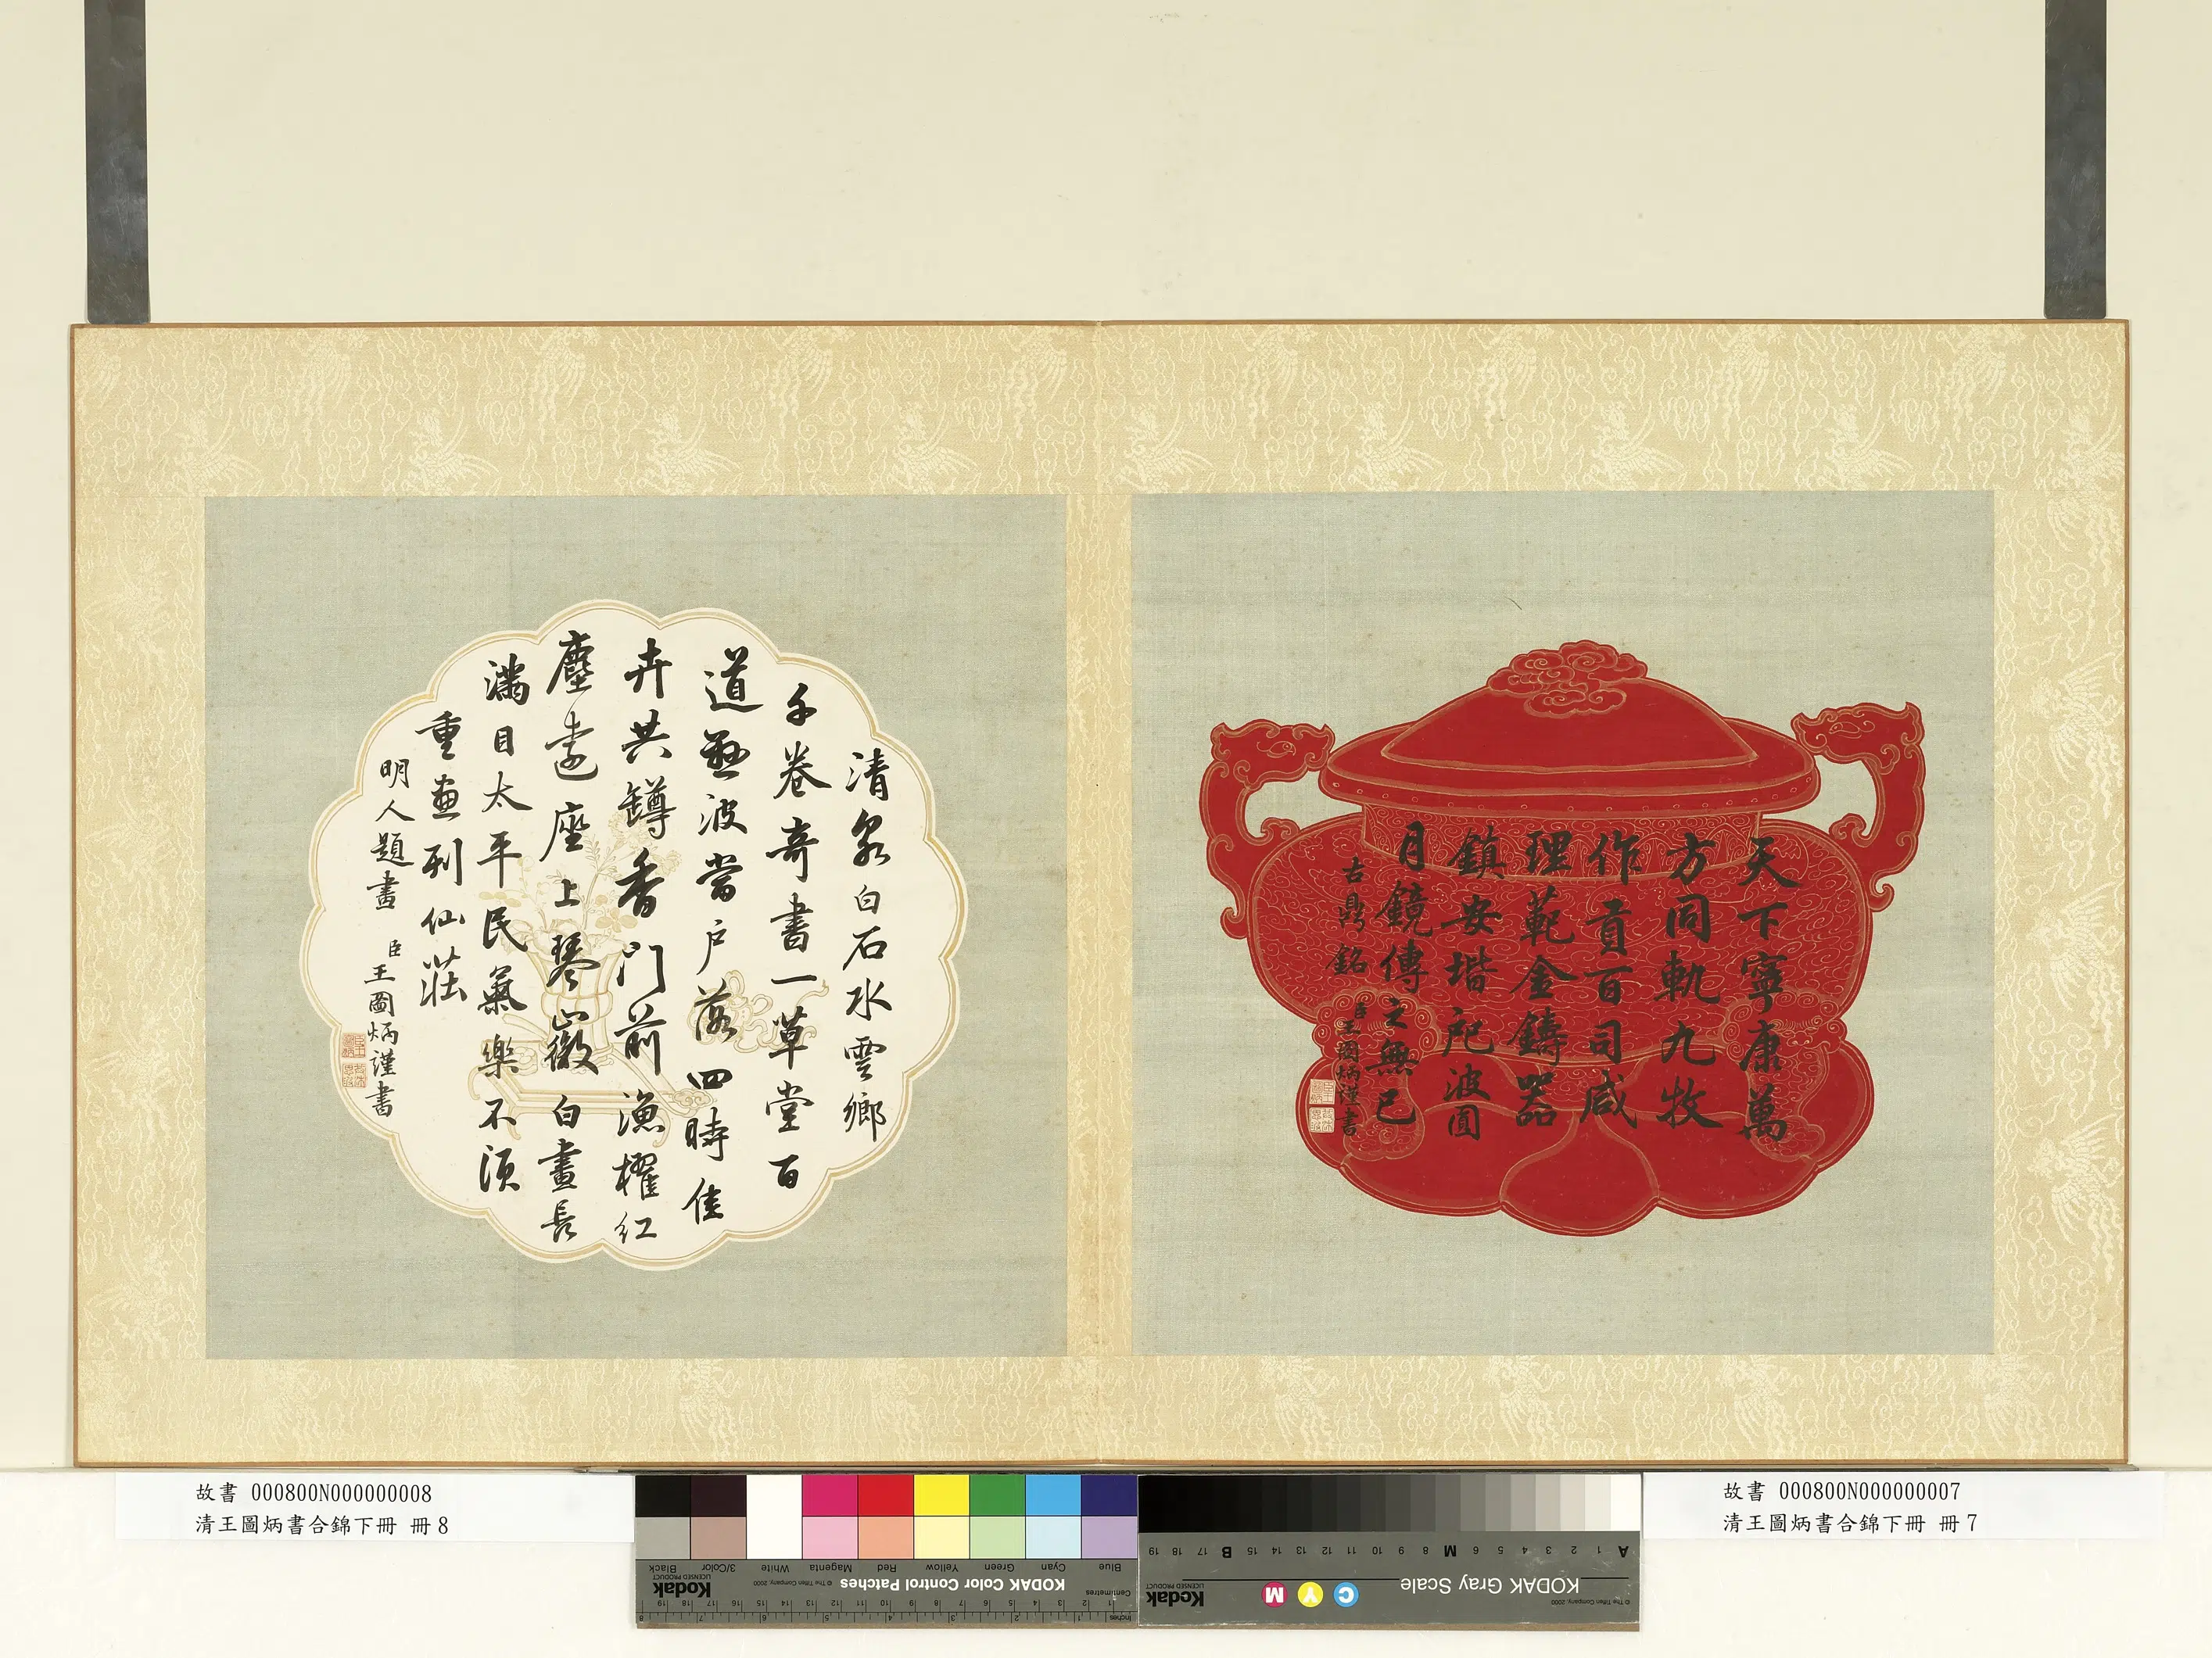 天下寧康萬
方同軌九牧
作貢百司咸
理範金鑄器
鎮安堦戺波圓
月鏡傳之無已
古鼎銘 臣王圖炳謹書
清泉白石水雲鄉
千卷奇書一草堂百
道波當戶落四時佳
卉共罇香門前漁櫂紅
塵遠座上琴徽白晝長
滿目太平民氣樂不須
重畫列仙莊
明人題畫 臣王圖炳謹書
故書 000800N000000008
清王圖炳書合錦下冊 冊8
故書 000800N000000007
清王圖炳書合錦下冊 冊7
Blue Cyan Green Yellow Red Magenta White 3/Color Black
KODAK Color Control Patches
© The Tiffen Company, 2000
Kodak
LICENSED PRODUCT
Centimetres
Inches
A 1 2 3 4 5 6 M 8 9 10 11 12 13 14 15 B 17 18 19
KODAK Gray Scale
C Y M
Kodak
LICENSED PRODUCT
© The Tiffen Company, 2000